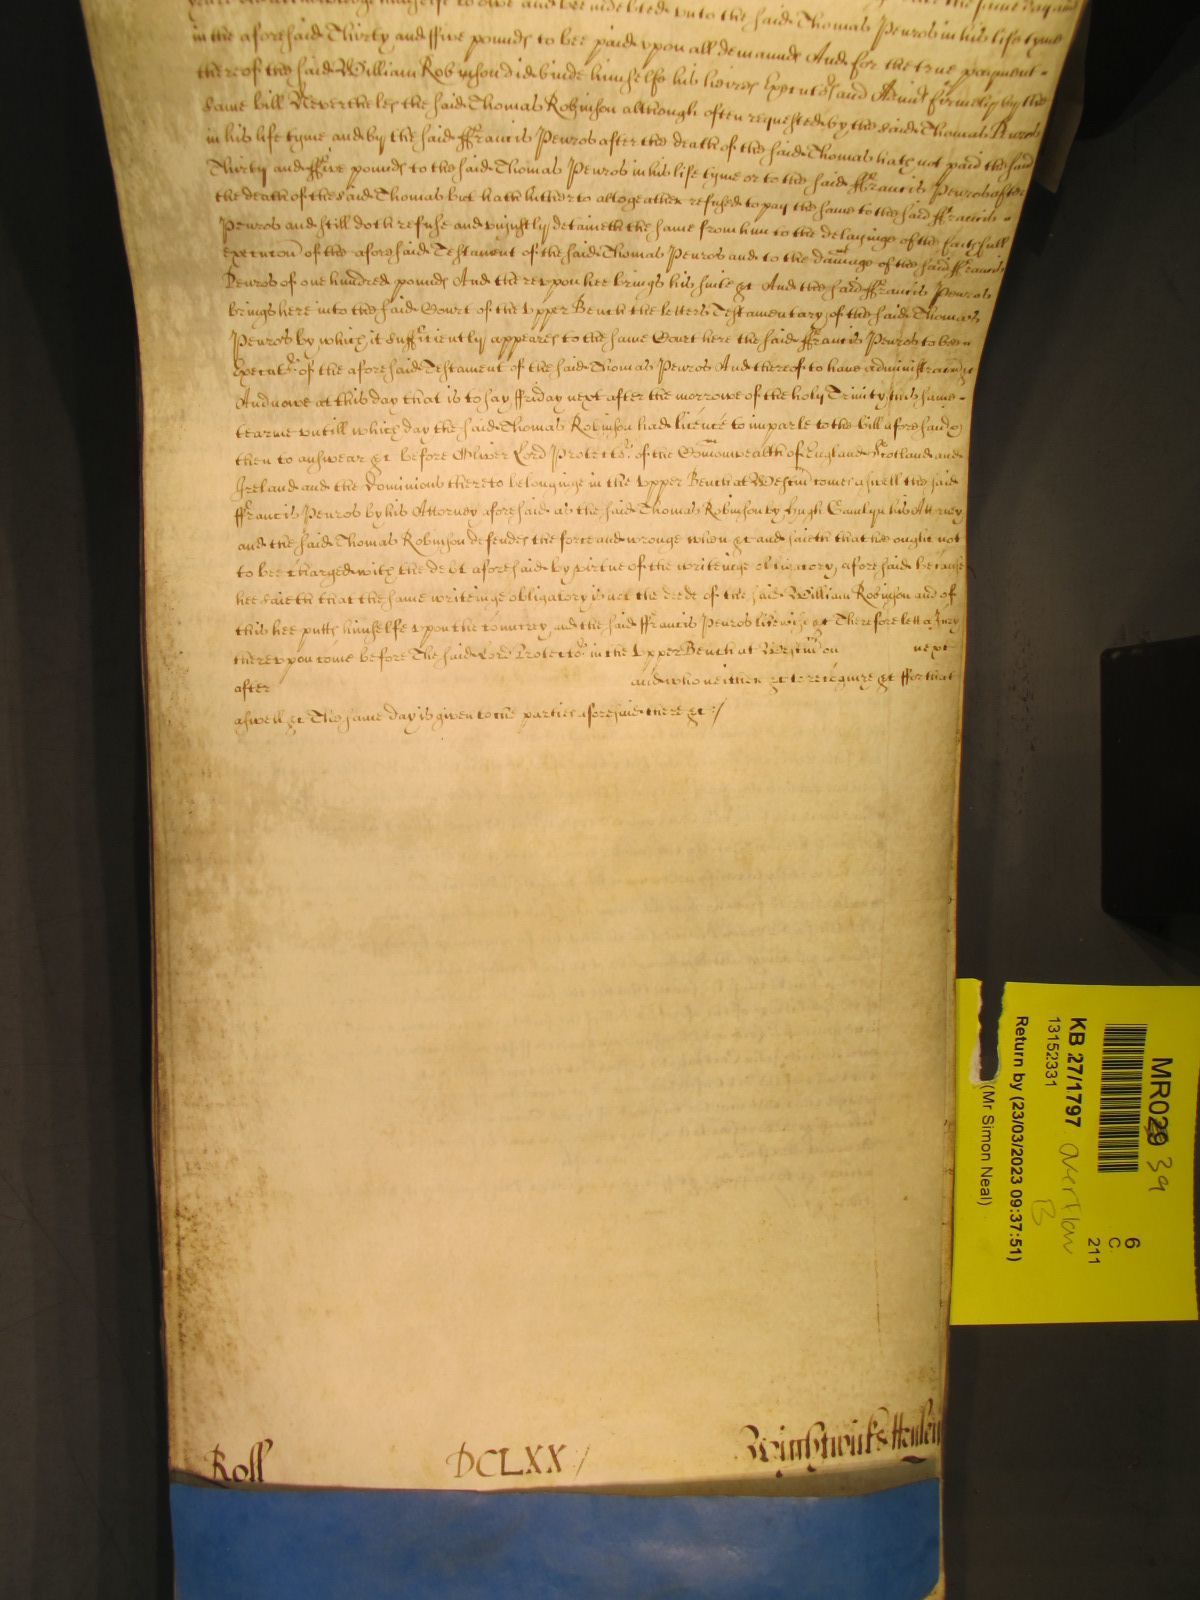 acknowledge himselfe to owe and bee indebted unto the said Thomas Penros in his life tyme
in the aforesaid Thirty and ffive pounds to bee paid upon all demaunds And for the true payment
thereof the said William Robinson did binde himselfe his heires Executrs and Admrs firmely by the
same bill Neverthelesthe said Thomas Robinson although often requested by the said Thomas Penros
in his life tyme and by the said ffrancis Penros after the death of the said Thomas hath not paid the said
Thirty and ffive pounds to the said Thomas Penros in his life tyme or to the said ffrancis Penros after
the death of the said Thomas but hath hitherto altogeather refused to pay the same to the said ffrancis
Penros and still doth refuse and unjustly deteineth the same from him to the delayinge of the faithfull
execucon of the aforesaid Testament of the said Thomas Penros and to the damage of the said ffrancis
Penros of one hundred pounds And thereupon hee brings his suite &c And the said ffrancis Penros
brings here into the said Court of the Upper Bench the letters Testamentary of the said Thomas
Penros by which it sufficiently appeares to the same Court here the said ffrancis Penros to bee
Executr of the aforesaid Testament of the said Thomas Penros And thereof to have administracon &c
And nowe at this day that is to say ffriday next after the morrowe of the holy Trinity this same
tearme untill which day the said Thomas Robinson had licence to imparle to the bill aforesaid &
then to answear &c before Oliver Lord Protector of the Comonwealth of England Scotland and
Ireland and the Dominions thereto belonginge in the Upper Bench at Westm comes aswell the said
ffrancis Penros by his Attorney aforesaid as the said Thomas Robinson by Hugh his Attorney
and the said Thomas Robinson defendes the force and wronge when &c and saieth that hee ought not
to bee charged with the debt aforesaid by virtue of the writeinge obligatory aforesaid because
hee saieth that the same writeinge obligatory is not the deede of the said William Robinson and of
this hee putts himselfe upon the countrey and the said ffrancis Penros likewise &c Therefore lett a Jury
thereupon come before the said Lord Protector in the Upper Bench at Westm on next
after and who neither &c to recognize &c ffor that
aswell &c The same day is given to the parties aforesaid there &c ://
Roll DCLXX / Wightwick & Henley
MR029 39
6
C
211
KB 27/1797 overflow B
13152331
Return by (23/03/2023 09:37:51)
(Mr Simon Neal)